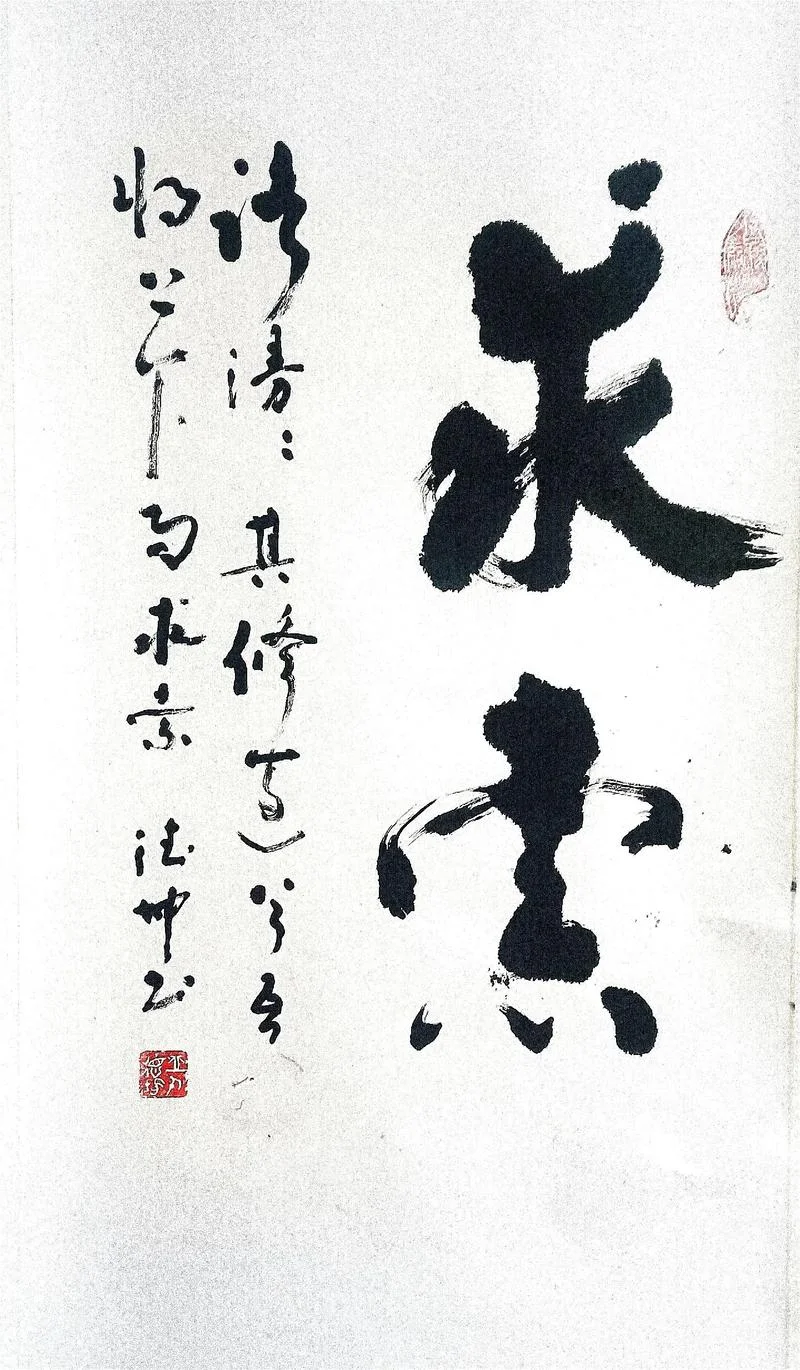 求索
路漫々其修远兮吾
将上下而求索 德坤书